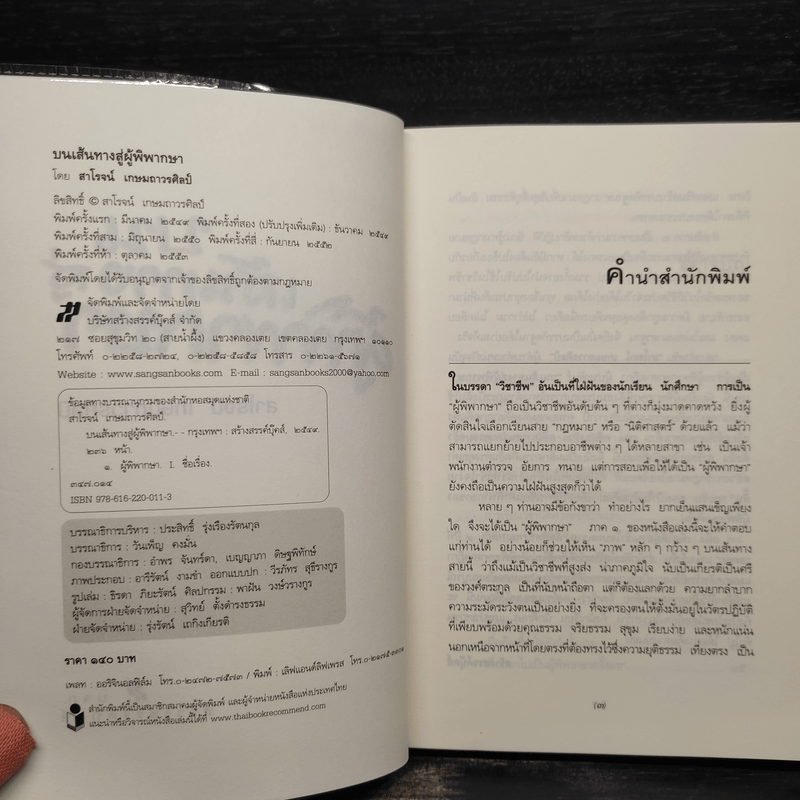 บนเส้นทางสู่ผู้พิพากษา
โดย สาโรจน์ เกษมถาวรศิลป์
ลิขสิทธิ์ © สาโรจน์ เกษมถาวรศิลป์
พิมพ์ครั้งแรก : มีนาคม ๒๕๔๙ พิมพ์ครั้งที่สอง (ปรับปรุงเพิ่มเติม) : ธันวาคม ๒๕๔๙
พิมพ์ครั้งที่สาม : มิถุนายน ๒๕๕๐ พิมพ์ครั้งที่สี่ : กันยายน ๒๕๕๒
พิมพ์ครั้งที่ห้า : ตุลาคม ๒๕๕๓
จัดพิมพ์โดยได้รับอนุญาตจากเจ้าของลิขสิทธิ์ถูกต้องตามกฎหมาย
จัดพิมพ์และจัดจำหน่ายโดย
บริษัทสร้างสรรค์บุ๊คส์ จำกัด
๒๑๗ ซอยสุขุมวิท ๒๐ (สายน้ำผึ้ง) แขวงคลองเตย เขตคลองเตย กรุงเทพฯ ๑๐๑๑๐
โทรศัพท์ ๐-๒๒๕๘-๒๗๒๔, ๐-๒๒๕๘-๕๘๕๘ โทรสาร ๐-๒๒๖๑-๕๐๗๑
Website : www.sangsanbooks.com E-mail : sangsanbooks2000@yahoo.com
ข้อมูลทางบรรณานุกรมของสำนักหอสมุดแห่งชาติ
สาโรจน์ เกษมถาวรศิลป์
บนเส้นทางสู่ผู้พิพากษา.- - กรุงเทพฯ : สร้างสรรค์บุ๊คส์, ๒๕๔๙.
๒๓๖ หน้า.
๑. ผู้พิพากษา. I. ชื่อเรื่อง.
๓๔๗.๐๑๔
ISBN 978-616-220-011-3
บรรณาธิการบริหาร : ประสิทธิ์ รุ่งเรืองรัตนกุล
บรรณาธิการ : วันเพ็ญ คงมั่น
กองบรรณาธิการ : อำพร จันทร์ดา, เบญญาภา ดิษฐพิทักษ์
ภาพประกอบ : อารีรัตน์ งามขำ ออกแบบปก : วีรภัทร สุธีรางกูร
รูปเล่ม : ธิรดา ภิยะรัตน์ ศิลปกรรม : พาฝัน วงษ์วรางกูร
ผู้จัดการฝ่ายจัดจำหน่าย : สุวิทย์ ตั้งดำรงธรรม
ฝ่ายจัดจำหน่าย : รุ่งรัตน์ เถกิงเกียรติ
ราคา ๑๔๐ บาท
เพลท : ออริจินอลฟิล์ม โทร.๐-๒๔๗๒-๗๕๗๓ / พิมพ์ : เลิฟแอนด์ลิฟเพรส
สำนักพิมพ์นี้เป็นสมาชิกสมาคมผู้จัดพิมพ์ และผู้จำหน่ายหนังสือแห่งประเทศไทย
แนะนำหรือวิจารณ์หนังสือเล่มนี้ได้ที่ www.thaibookrecommend.com
คำนำสำนักพิมพ์
ในบรรดา “วิชาชีพ” อันเป็นที่ใฝ่ฝันของนักเรียน นักศึกษา การเป็น
“ผู้พิพากษา” ถือเป็นวิชาชีพอันดับต้น ๆ ที่ต่างก็มุ่งมาดคาดหวัง ยิ่งผู้
ตัดสินใจเลือกเรียนสาย “กฎหมาย” หรือ “นิติศาสตร์” ด้วยแล้ว แม้ว่า
สามารถแยกย้ายไปประกอบอาชีพต่าง ๆ ได้หลายสาขา เช่น เป็นเจ้า
พนักงานตำรวจ อัยการ ทนาย แต่การสอบเพื่อให้ได้เป็น “ผู้พิพากษา”
ยังคงถือเป็นความใฝ่ฝันสูงสุดก็ว่าได้
หลาย ๆ ท่านอาจมีข้อกังขาว่า ทำอย่างไร ยากเย็นแสนเข็ญเพียง
ใด จึงจะได้เป็น “ผู้พิพากษา” ภาค ๑ ของหนังสือเล่มนี้จะให้คำตอบ
แก่ท่านได้ อย่างน้อยก็ช่วยให้เห็น “ภาพ” หลัก ๆ กว้าง ๆ บนเส้นทาง
สายนี้ ว่าถึงแม้เป็นวิชาชีพที่สูงส่ง น่าภาคภูมิใจ นับเป็นเกียรติเป็นศรี
ของวงศ์ตระกูล เป็นที่นับหน้าถือตา แต่ก็ต้องแลกด้วย ความยากลำบาก
ความระมัดระวังตนเป็นอย่างยิ่ง ที่จะครองตนให้ตั้งมั่นอยู่ในวัตรปฏิบัติ
ที่เพียบพร้อมด้วยคุณธรรม จริยธรรม สุขุม เรียบง่าย และหนักแน่น
นอกเหนือจากหน้าที่โดยตรงที่ต้องทรงไว้ซึ่งความยุติธรรม เที่ยงตรง เป็น
(๓)